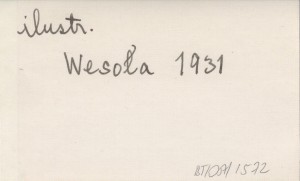 ilustr.
Wesoła 1931
BT/OA/1572